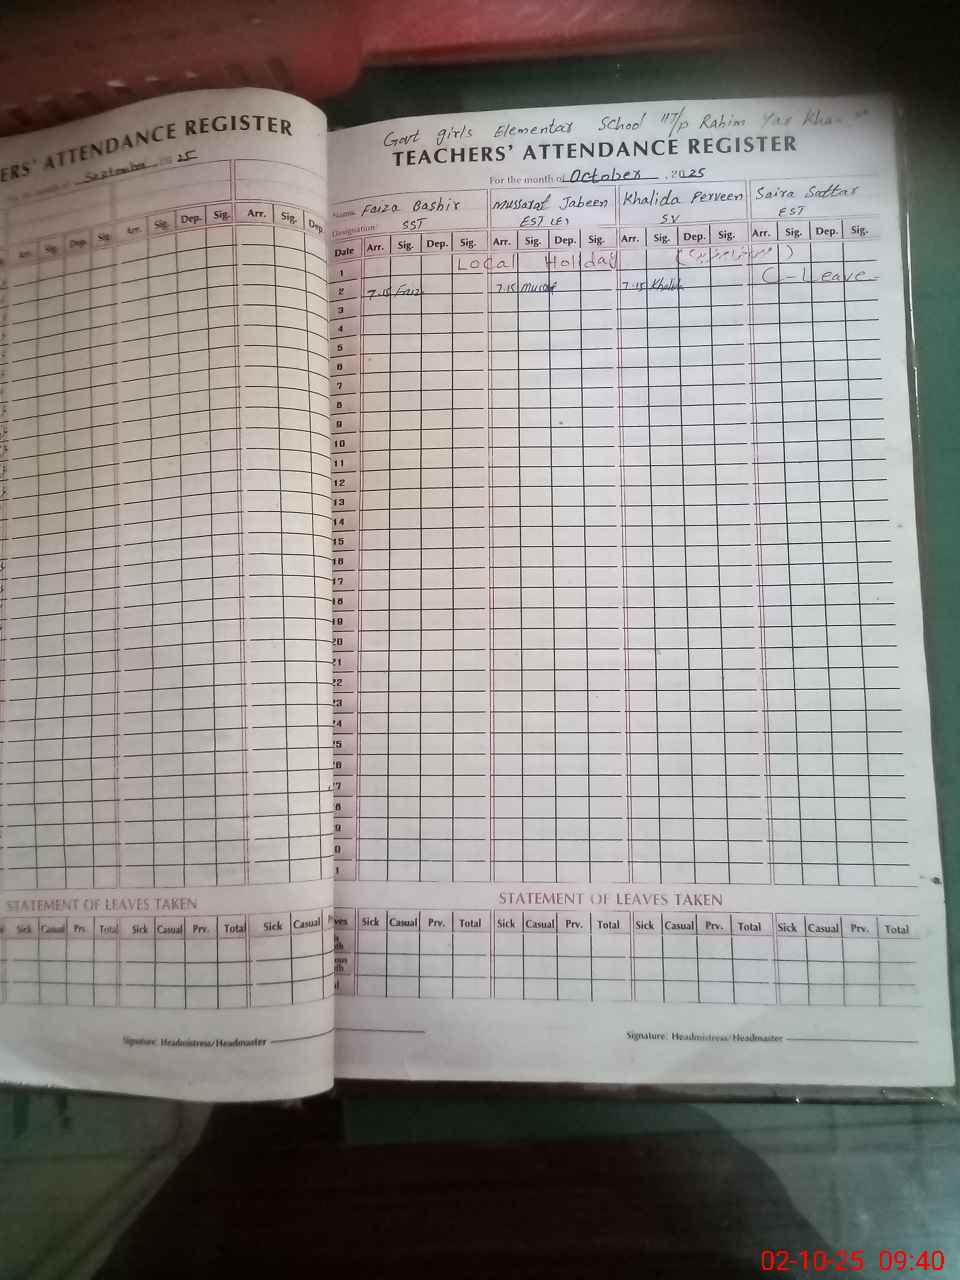 ERS' ATTENDANCE REGISTER
September 25
Arr. Sig. Dep. Sig. Arr. Sig. Dep. Sig. Arr. Sig. Dep.
STATEMENT OF LEAVES TAKEN
Sick Casual Prv. Total Sick Casual Prv. Total Sick Casual
Signature: Headmistress/Headmaster
Govt girls Elementar School 117/p Rahim Yar Khan
TEACHERS' ATTENDANCE REGISTER
For the month of October, 2025
Name Faiza Bashir Mussarat Jabeen Khalida Perveen Saira Sattar
Designation SST EST SV EST
Date Arr. Sig. Dep. Sig. Arr. Sig. Dep. Sig. Arr. Sig. Dep. Sig. Arr. Sig. Dep. Sig.
1 Local Holiday
2 7.15 Faiz 7.15 7.15 Khalida C-Leave
3
4
5
6
7
8
9
10
11
12
13
14
15
16
17
18
19
20
21
22
3
4
5
6
7
8
9
0
1
STATEMENT OF LEAVES TAKEN
ves Sick Casual Prv. Total Sick Casual Prv. Total Sick Casual Prv. Total Sick Casual Prv. Total
Signature: Headmistress/Headmaster
02-10-25 09:40